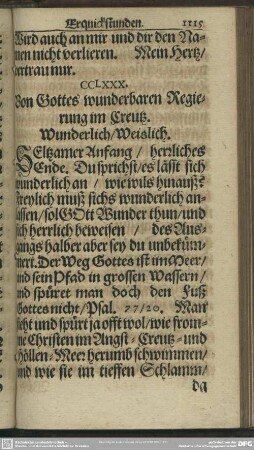 Erquickstunden. 1115
Wird auch an mir und dir den Na-
men nicht verlieren. Mein Hertz/
vertrau nur.
CCLXXX.
Von Gottes wunderbaren Regie-
rung im Creutz.
Wunderlich/Weislich.
SEltzamer Anfang / herrliches
Ende. Du sprichst/es lässt sich
wunderlich an / wie wils hinauß?
Freylich muß sichs wunderlich an-
lassen/sol GOtt Wunder thun/und
sich herrlich beweisen / des Aus-
gangs halber aber sey du unbeküm-
mert. Der Weg Gottes ist im Meer/
und sein Pfad in grossen Wassern/
und spüret man doch den Fuß
Gottes nicht/Psal. 77/20. Man
sieht und spürt ja offt wol/wie from-
me Christen im Angst-Creutz-und
Höllen-Meer herumb schwimmen/
und wie sie im tieffen Schlamm/
da